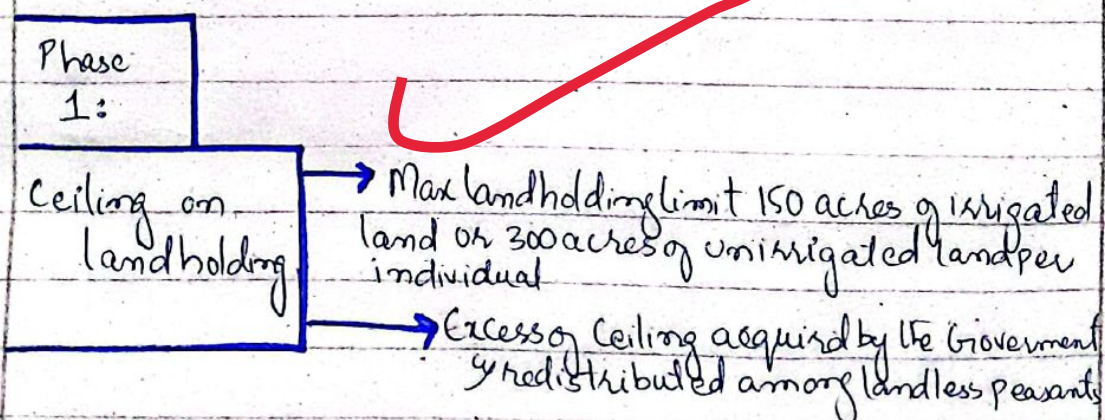 Phase
1:
Ceiling on
landholding
Max landholding limit 150 acres of irrigated
land or 300 acres of unirrigated land per
individual
Excess of Ceiling acquird by the Goverment
& redistributed among landless peasants